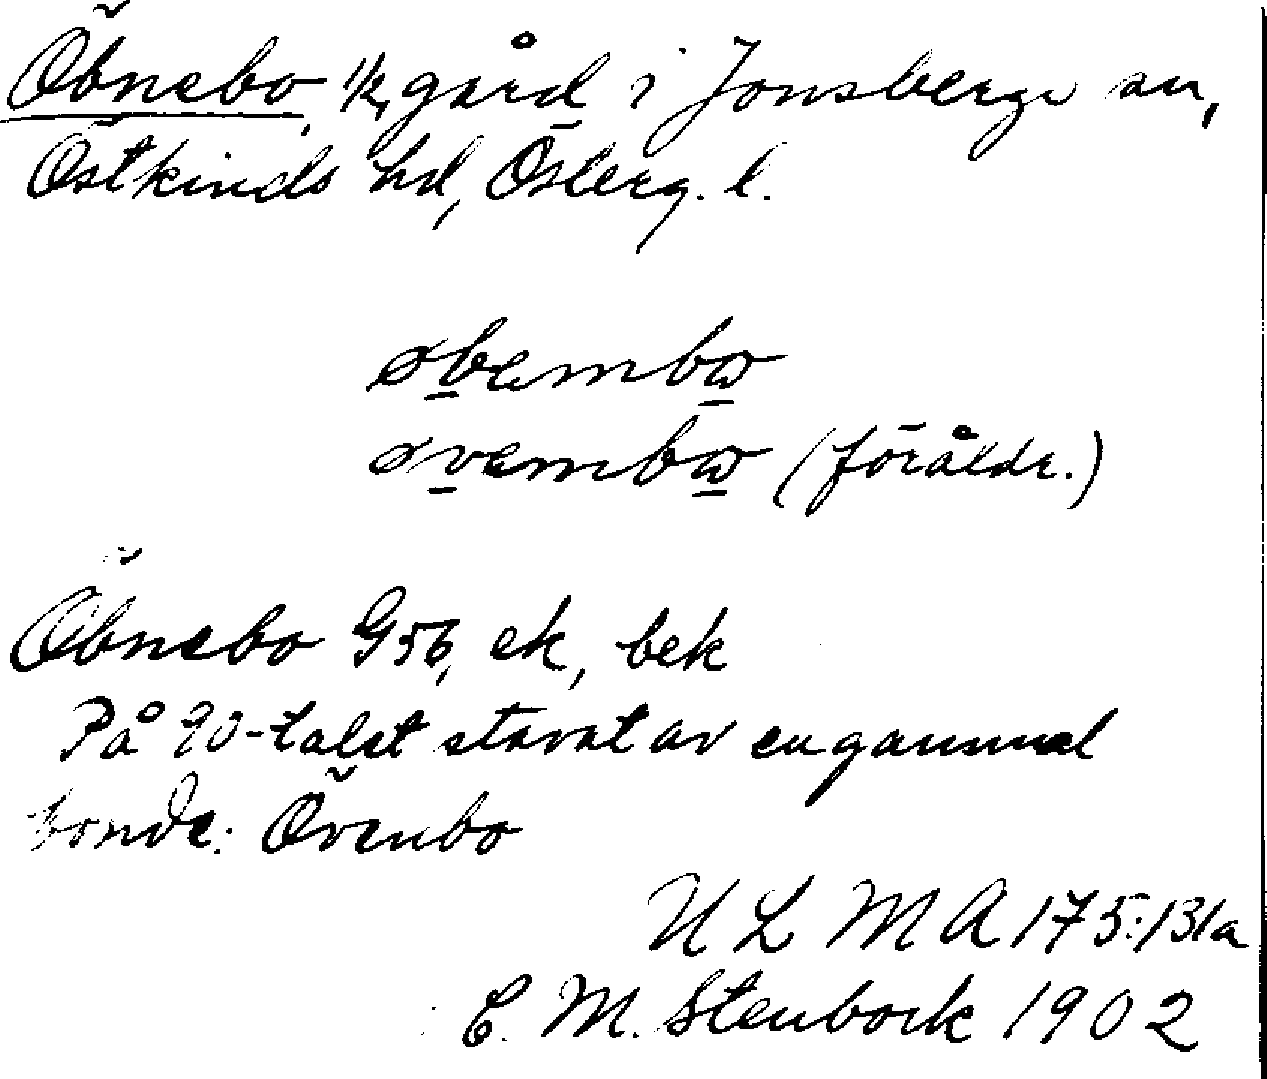 Öbnebo, ½ gård i Jonsbergs sn,
Östkinds hd, Österg. l.
øbembω
øvembω (föråldr.)
Öbnebo G56, ek, bek
På 90-talet stavat av en gammal
bonde: Övenbo
ULMA 175:131a
E. M. Stenbock 1902